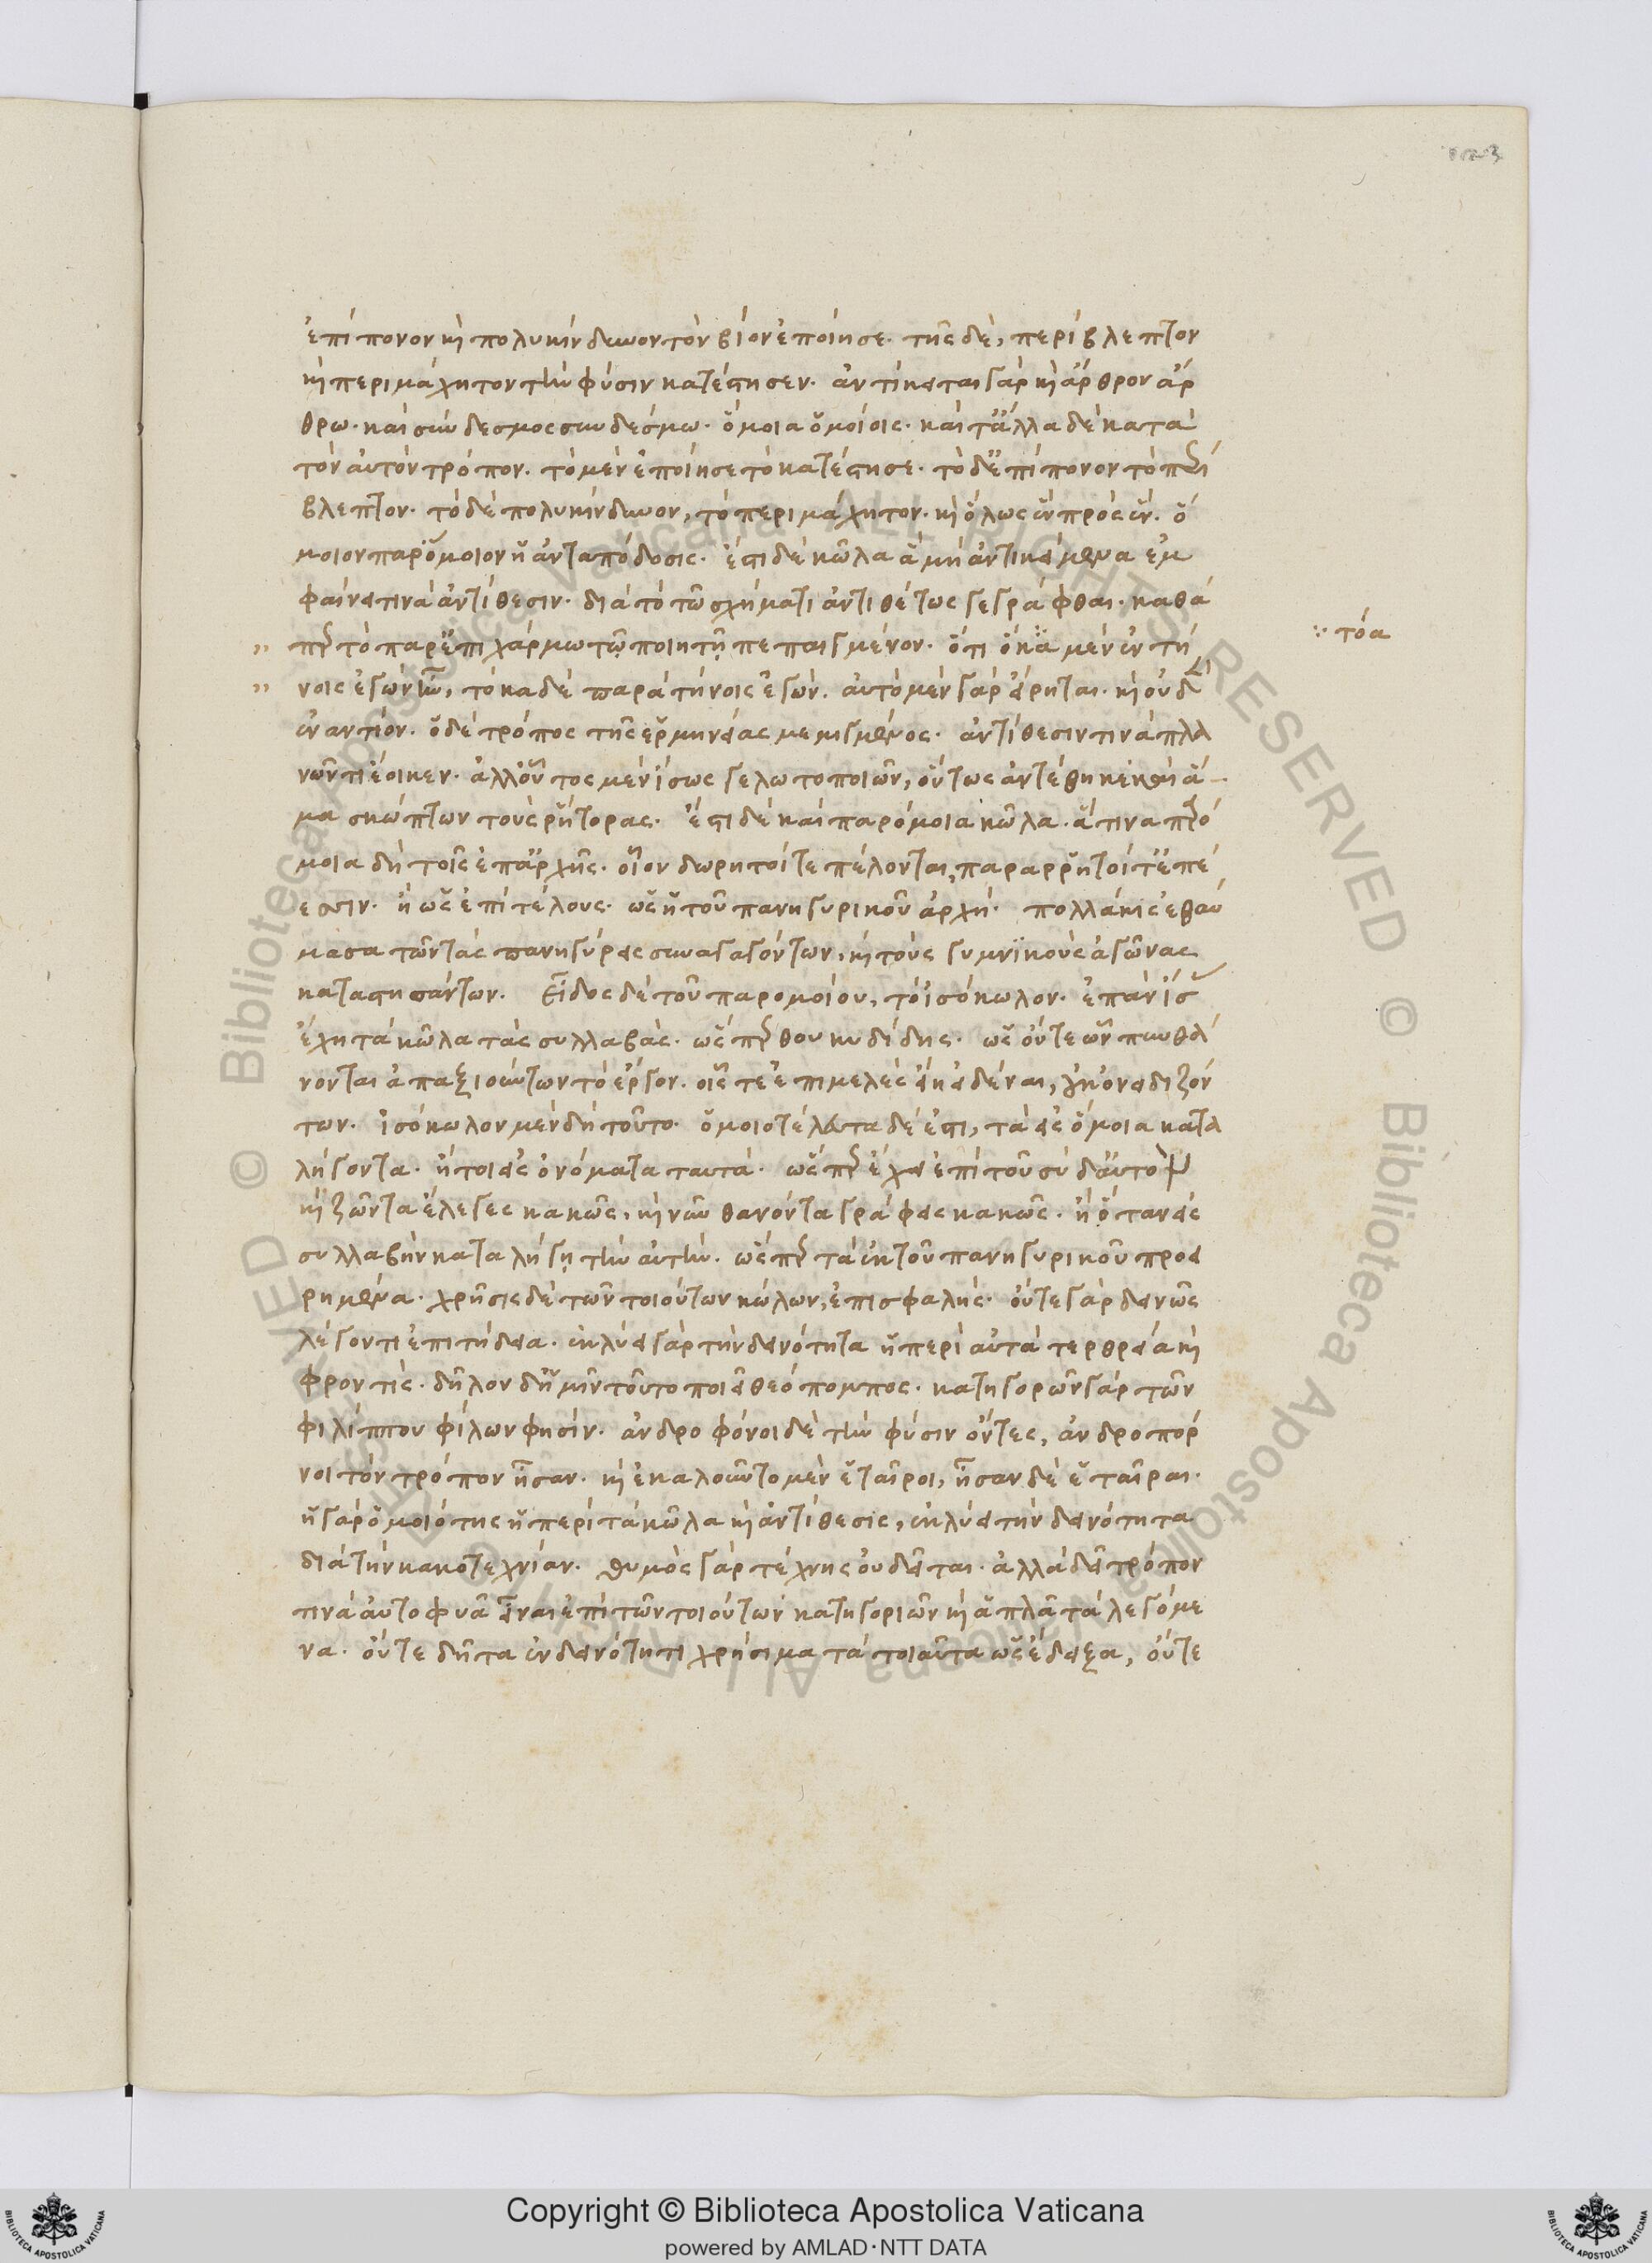 123
ἐπίπονον καὶ πολυκίνδυνον τὸν βίον ἐποίησε. τῆς δὲ, περίβλεπτον
καὶ περιμάχητον τὴν φύσιν κατέστησεν. ἀντίκειται γὰρ καὶ ἄρθρον ἄρ
θρω. καὶ σύνδεσμος συνδέσμω. ὅμοια ὁμοίοις. καὶ τἄλλα δὲ κατὰ
τὸν αὐτὸν τρόπον. τὸ μὲν ἐποίησε τὸ κατέστησε. τὸ δ' ἐπίπονον τὸ περί
βλεπτον. τὸ δὲ πολυκίνδυνον, τὸ περιμάχητον. καὶ ὅλως ἓν πρὸς ἕν. ὅ
μοιον παρ' ὅμοιον ἡ ἀνταπόδοσις. ἔστι δὲ κῶλα ἃ μὴ ἀντικείμενα ἐμ
φαίνει τινὰ ἀντίθεσιν. διὰ τὸ τῶ σχήματι ἀντιθέτως γεγράφθαι. καθά
περ τὸ παρ' ἐπιχάρμω τῷ ποιητῇ πεπαιγμένον. ὅτι ὅκα μὲν ἐν τή
∵ τόα
νοις ἐγὼν ἦν, τόκα δὲ παρὰ τήνοις ἐγών. αὐτὸ μὲν γὰρ εἴρηται. καὶ οὐδὲν
ἐναντίον. ὁ δὲ τρόπος τῆς ἑρμηνείας μεμιγμένος. ἀντίθεσίν τινα πλα
νῶντι ἔοικεν. ἀλλ' οὗτος μὲν ἴσως γελωτοποιῶν, οὕτως ἀντέθηκε καὶ ἅ
μα σκώπτων τοὺς ῥήτορας. ἔστι δὲ καὶ παρόμοια κῶλα. ἅτινα παρό
μοια δὴ τοῖς ἐπ' ἀρχῆς. οἷον δωρητοί τε πέλονται, παράρρητοί τ' ἐπέ
εσσιν. ἢ ὡς ἐπὶ τέλους. ὡς ἡ τοῦ πανηγυρικοῦ ἀρχή. πολλάκις ἐθαύ
μασα τῶν τὰς πανηγύρεις συναγαγόντων, καὶ τοὺς γυμνικοὺς ἀγῶνας
καταστησάντων. Εἶδος δὲ τοῦ παρομοίου, τὸ ἰσόκωλον. ἐπὰν ἴσας
ἔχη τὰ κῶλα τὰς συλλαβάς. ὥσπερ θουκυδίδης. ὡς οὔτε ὧν πυνθά
νονται ἀπαξιούντων τὸ ἔργον. οἷς τε ἐπιμελὲς εἴη εἰδέναι, οὐκ ὀνειδιζόν
των. ἰσόκωλον μὲν δὴ τοῦτο. ὁμοιοτέλευτα δέ ἐστι, τὰ εἰς ὅμοια κατα
λήγοντα. ἤτοι εἰς ὀνόματα ταυτά. ὥσπερ ἔχει ἐπὶ τοῦ σὺ δ' αὐτὸν
καὶ ζῶντα ἔλεγες κακῶς, καὶ νῦν θανόντα γράφεις κακῶς. ἢ ὅταν εἰς
συλλαβὴν καταλήγῃ τὴν αὐτήν. ὥσπερ τὰ ἐκ τοῦ πανηγυρικοῦ προει
ρημένα. χρῆσις δὲ τῶν τοιούτων κώλων, ἐπισφαλής. οὔτε γὰρ δεινῶς
λέγοντι ἐπιτήδεια. ἐκλύει γὰρ τὴν δεινότητα ἡ περὶ αὐτὰ τερθρεία καὶ
φροντίς. δῆλον δ' ἡμῖν τοῦτο ποιεῖ θεόπομπος. κατηγορῶν γὰρ τῶν
φιλίππου φίλων φησίν. ἀνδροφόνοι δὲ τὴν φύσιν ὄντες, ἀνδροπόρ
νοι τὸν τρόπον ἦσαν. καὶ ἐκαλοῦντο μὲν ἑταῖροι, ἦσαν δὲ ἑταῖραι.
ἡ γὰρ ὁμοιότης ἡ περὶ τὰ κῶλα καὶ ἀντίθεσις, ἐκλύει τὴν δεινότητα
διὰ τὴν κακοτεχνίαν. θυμὸς γὰρ τέχνης οὐ δεῖται. ἀλλὰ δεῖ τρόπον
τινὰ αὐτοφυᾶ εἶναι ἐπὶ τῶν τοιούτων κατηγοριῶν καὶ ἁπλᾶ τὰ λεγόμε
να. οὔτε δῆτα ἐν δεινότητι χρήσιμα τὰ τοιαῦτα ὡς ἔδειξα, οὔτε
© Biblioteca Apostolica Vaticana ALL RIGHTS RESERVED
Copyright © Biblioteca Apostolica Vaticana
powered by AMLAD·NTT DATA
BIBLIOTECA APOSTOLICA VATICANA
BIBLIOTECA APOSTOLICA VATICANA